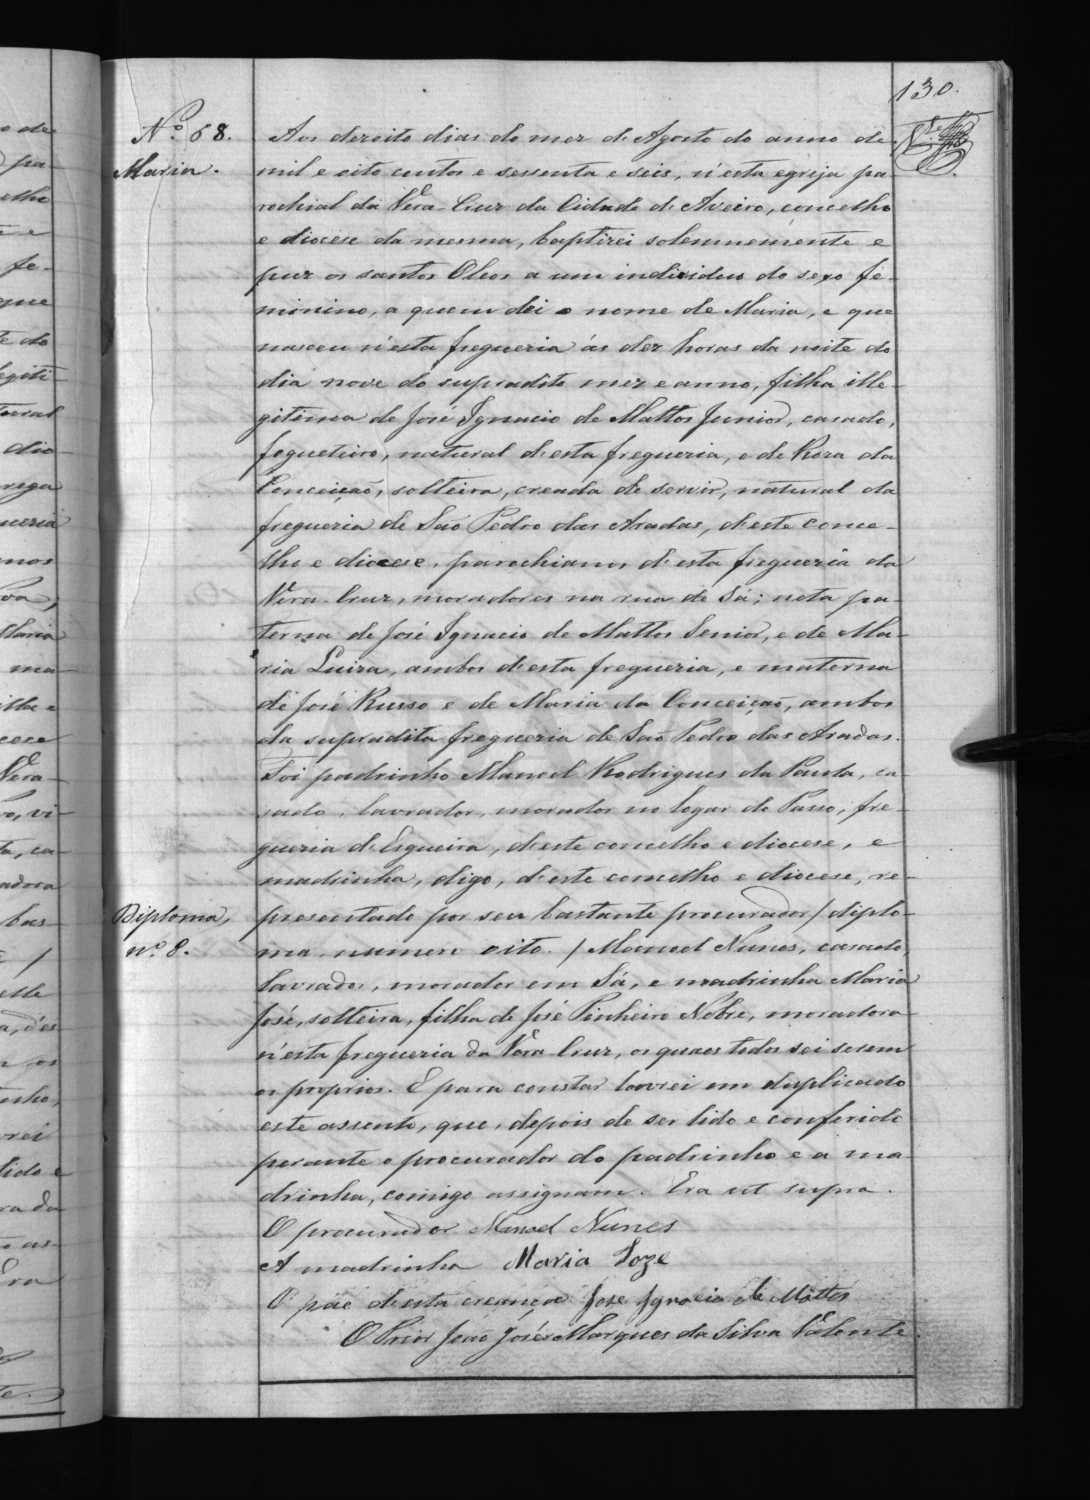 130.
Nº 68.
Maria.
Aos dezoito dias do mez de Agosto do anno de
mil e oito centos e sessenta e seis, n'esta egreja pa
rochial da Vera-Cruz da Cidade de Aveiro, concelho
e diocese da mesma, baptizei solemnemente e
puz os santos Oleos a um individuo do sexo fe-
minino, a quem dei o nome de Maria, e que
nasceu n'esta freguezia ás dez horas da noite do
dia nove do supradito mez e anno, filha ille-
gitima de José Ignacio de Mattos Junior, casado,
fogueteiro, natural d'esta freguezia, e de Roza da
Conceição, solteira, creada de servir, natural da
freguezia de São Pedro das Aradas, d'este conce-
lho e diocese, parochianos d'esta freguezia da
Vera-Cruz, moradores na rua de Sá; neta pa-
terna de José Ignacio de Mattos Senior, e de Ma-
ria Luiza, ambos d'esta freguezia, e materna
de José Russo e de Maria da Conceição, ambos
da supradita freguezia de São Pedro das Aradas.
Foi padrinho Manoel Rodrigues da Paula, ca-
sado, lavrador, morador no logar do Passo, fre-
guezia d'Esgueira, d'este concelho e diocese, e
madrinha, digo, d'este concelho e diocese, re-
Diploma,
nº 8.
presentado por seu bastante procurador / diplo-
ma numero oito. / Manoel Nunes, casado,
lavrador, morador em Sá, e madrinha Maria
José, solteira, filha de José Pinheiro Nobre, moradora
n'esta freguezia da Vera-Cruz, os quaes todos sei serem
os proprios. E para constar lavrei em duplicado
este assento, que, depois de ser lido e conferido
perante o procurador do padrinho e a ma
drinha, comigo assignam. Era ut supra.
O procurador Manoel Nunes
A madrinha Maria Joze
O pae d'esta creança Jose Ignacio de Mattos
O Prior João José Marques da Silva Valente.